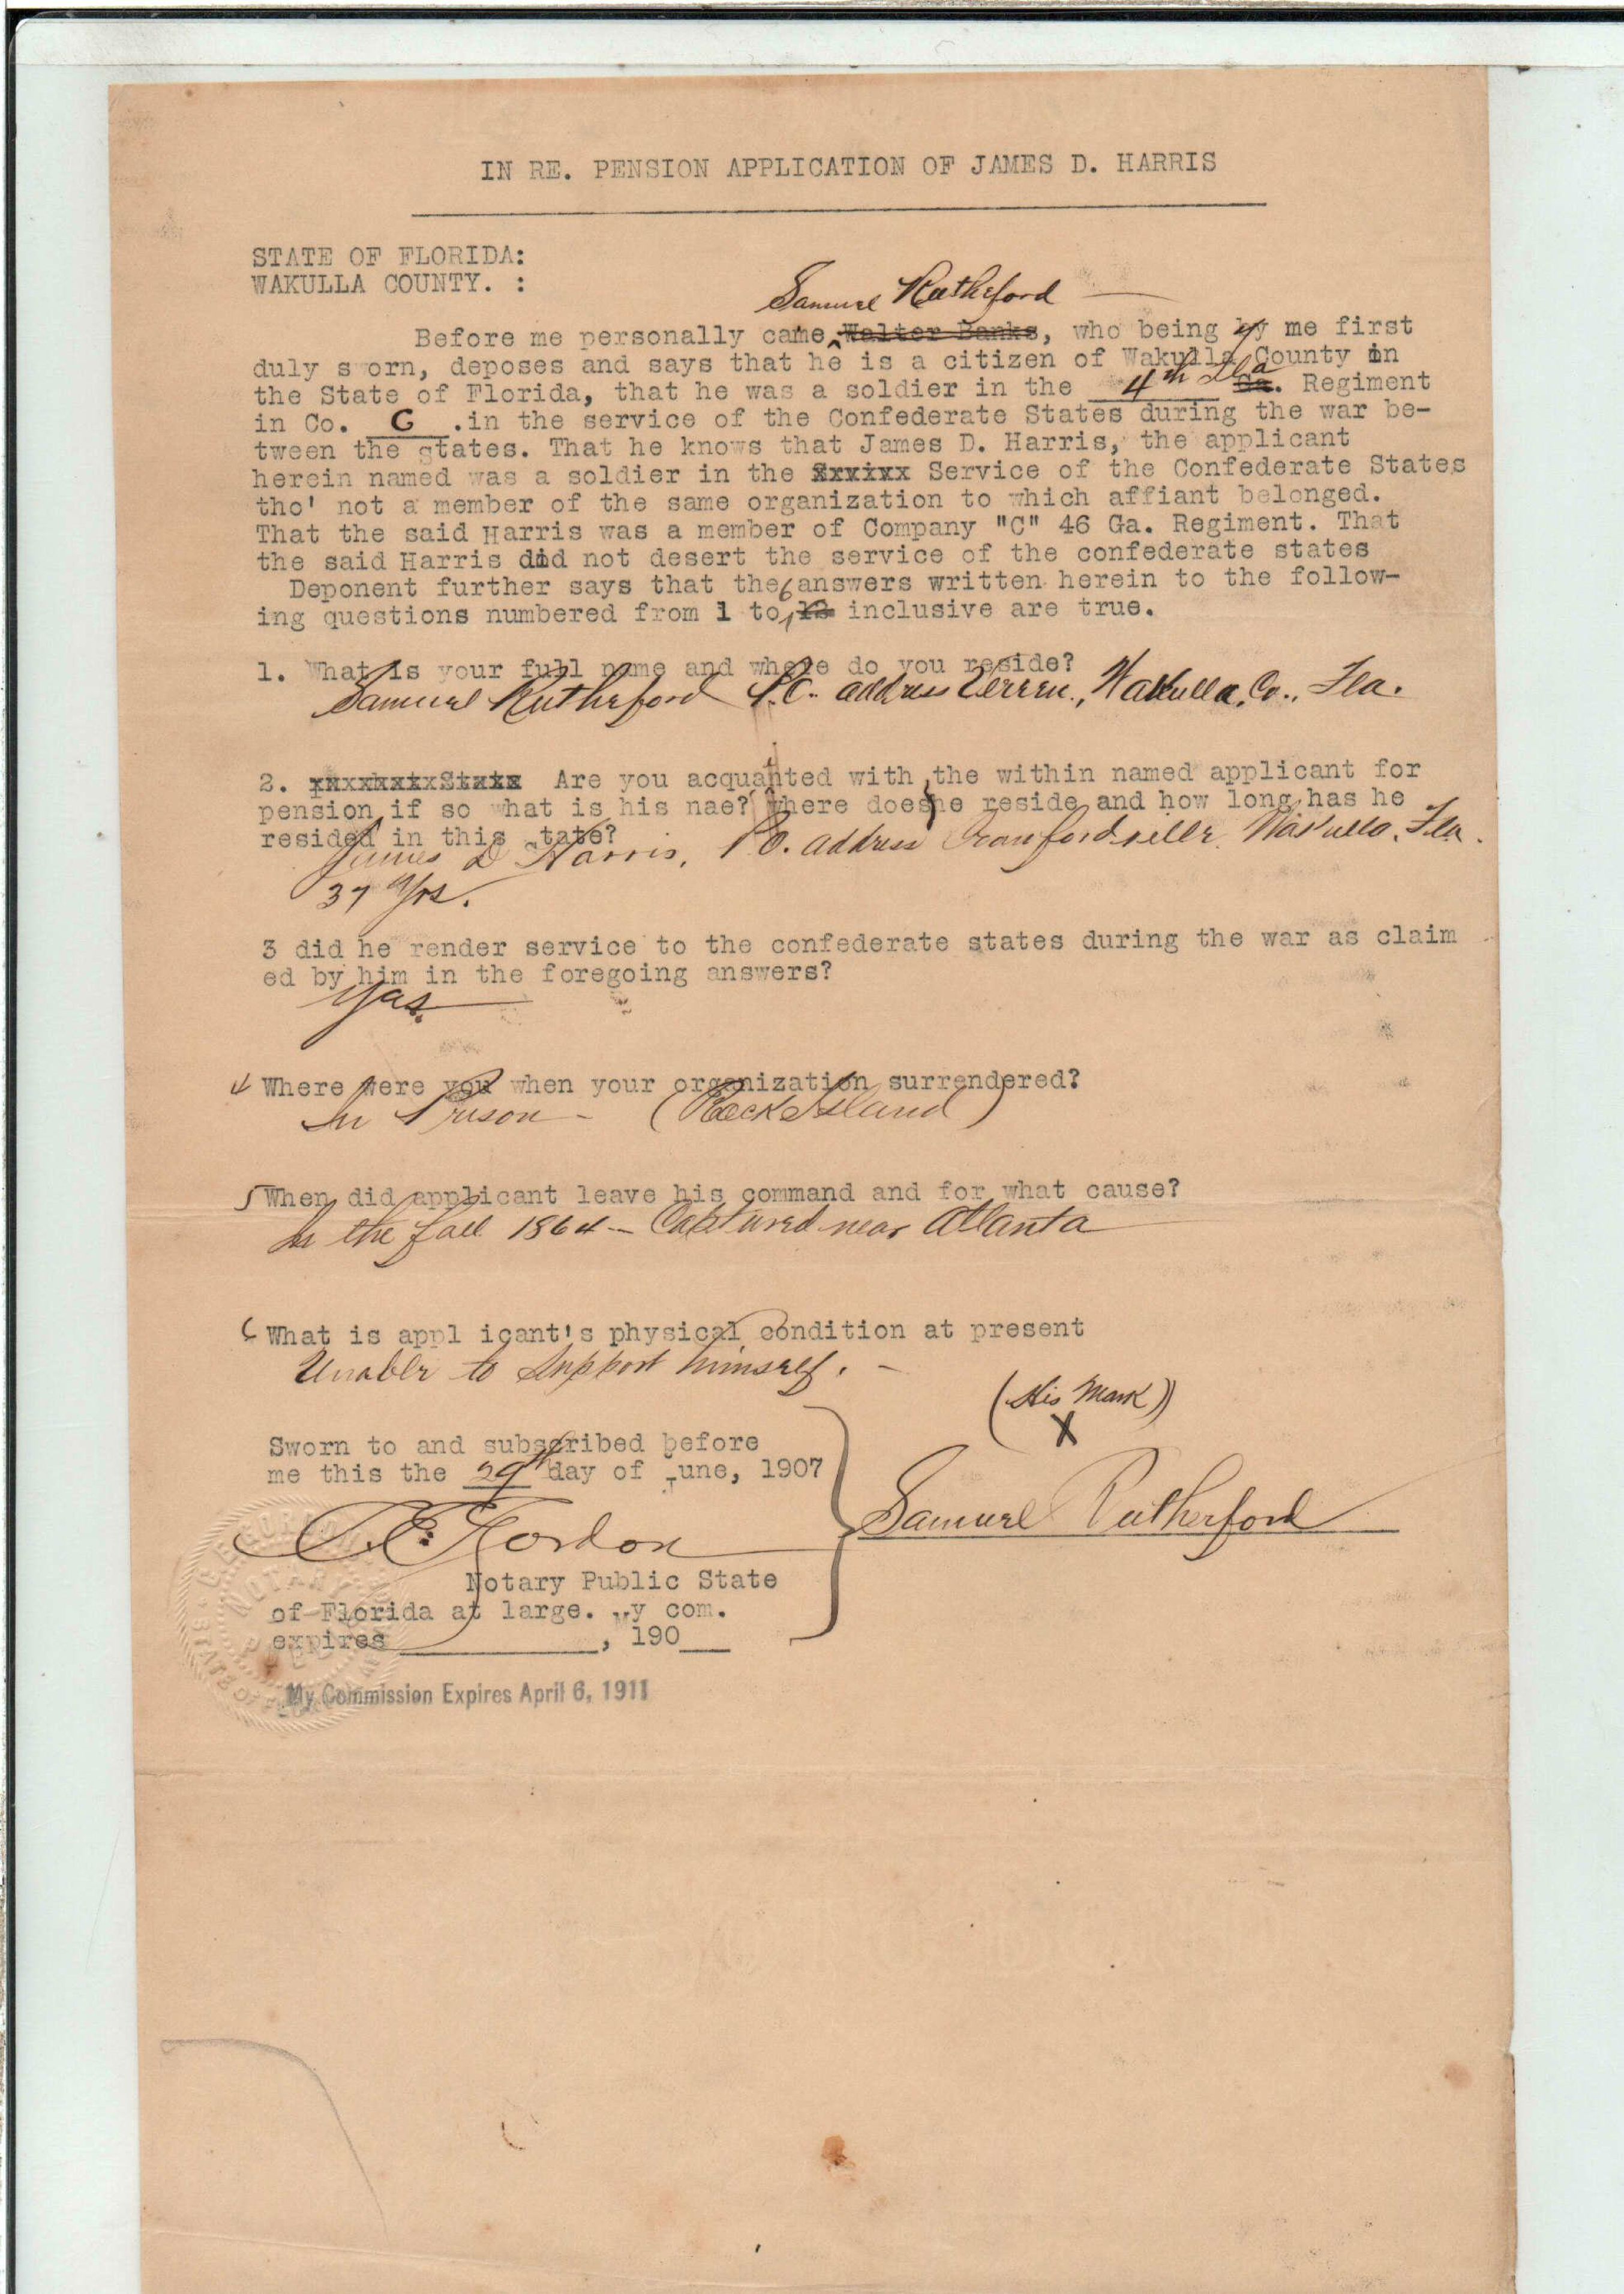 IN RE. PENSION APPLICATION OF JAMES D. HARRIS
STATE OF FLORIDA:
WAKULLA COUNTY. :
Samuel Rutheford
Before me personally came Walter Banks, who being by me first
duly s orn, deposes and says that he is a citizen of Wakulla County in
the State of Florida, that he was a soldier in the 4th Fla Ga. Regiment
in Co. G .in the service of the Confederate States during the war be-
tween the states. That he knows that James D. Harris, the applicant
herein named was a soldier in the xxxxxx Service of the Confederate States
tho' not a member of the same organization to which affiant belonged.
That the said Harris was a member of Company "C" 46 Ga. Regiment. That
the said Harris did not desert the service of the confederate states
Deponent further says that the answers written herein to the follow-
ing questions numbered from 1 to 6 12 inclusive are true.
1. What is your full name and where do you reside?
Samuel Rutheford P.O. address Wakulla, Co., Fla.
2. xxxxxxxxxState Are you acquanted with the within named applicant for
pension if so what is his nae? where does he reside and how long has he
resided in this state?
James D Harris, P.O. address Crawfordville, Wakulla, Fla.
37 yrs.
3 did he render service to the confederate states during the war as claim
ed by him in the foregoing answers?
Yas.
4 Where were you when your organization surrendered?
In Prison - (Rock Island)
5 When did applicant leave his command and for what cause?
In the fall 1864 - Captured near Atlanta
6 What is appl icant's physical condition at present
Unable to support himself. -
(His Mark)
X
Sworn to and subscribed before
me this the 29th day of June, 1907
Samuel Rutherford
Gordon
Notary Public State
of Florida at large. My com.
expires , 190
My Commission Expires April 6, 1911